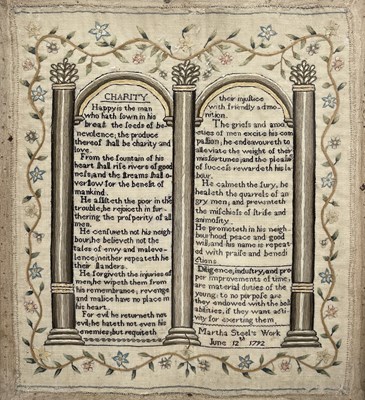 CHARITY
Happy is the man
who hath sown in his
breast the seeds of be
nevolence; the produce
thereof shall be charity and
love.
From the fountain of his
heart shall rise rivers of good
ness; and the streams shall o
verflow for the benefit of
mankind.
He assisteth the poor in their
trouble, he rejoiceth in fur
thering the prosperity of all
men.
He censureth not his neigh
bour, he believeth not the
tales of envy and malevo
lence; neither repeateth he
their slanders.
He forgiveth the injuries of
men, he wipeth them from
his remembrance; revenge
and malice have no place in
his heart.
For evil he returneth not
evil; he hateth not even his
enemies; but requiteth
their injustice
with friendly admo
nition.
The griefs and anxi
eties of men excite his com
passion; he endeavoureth to
alleviate the weight of their
misfortunes; and the pleasure
of success rewardeth his la
bour.
He calmeth the fury, he
healeth the quarrels of an
gry men; and preventeth
the mischiefs of strife and
animosity.
He promoteth in his neigh
bourhood peace and good
will; and his name is repeat
ed with praise and benedi
ctions.
Diligence, industry, and pro
per improvements of time,
are material duties of the
young: to no purpose are
they endowed with the best
abilities, if they want acti
vity for exerting them.
Martha Steel's Work
June 12th 1792